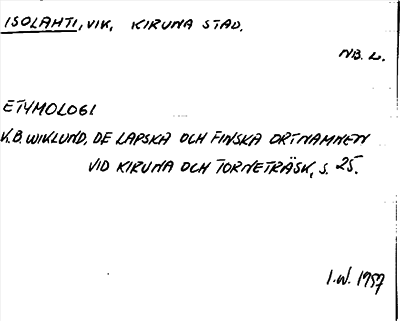 ISOLAHTI, VIK, KIRUNA STAD.
NB. L.
ETYMOLOGI
K.B. WIKLUND, DE LAPSKA OCH FINSKA ORTNAMNEN
VID KIRUNA OCH TORNETRÄSK, S. 25.
I.W. 1957